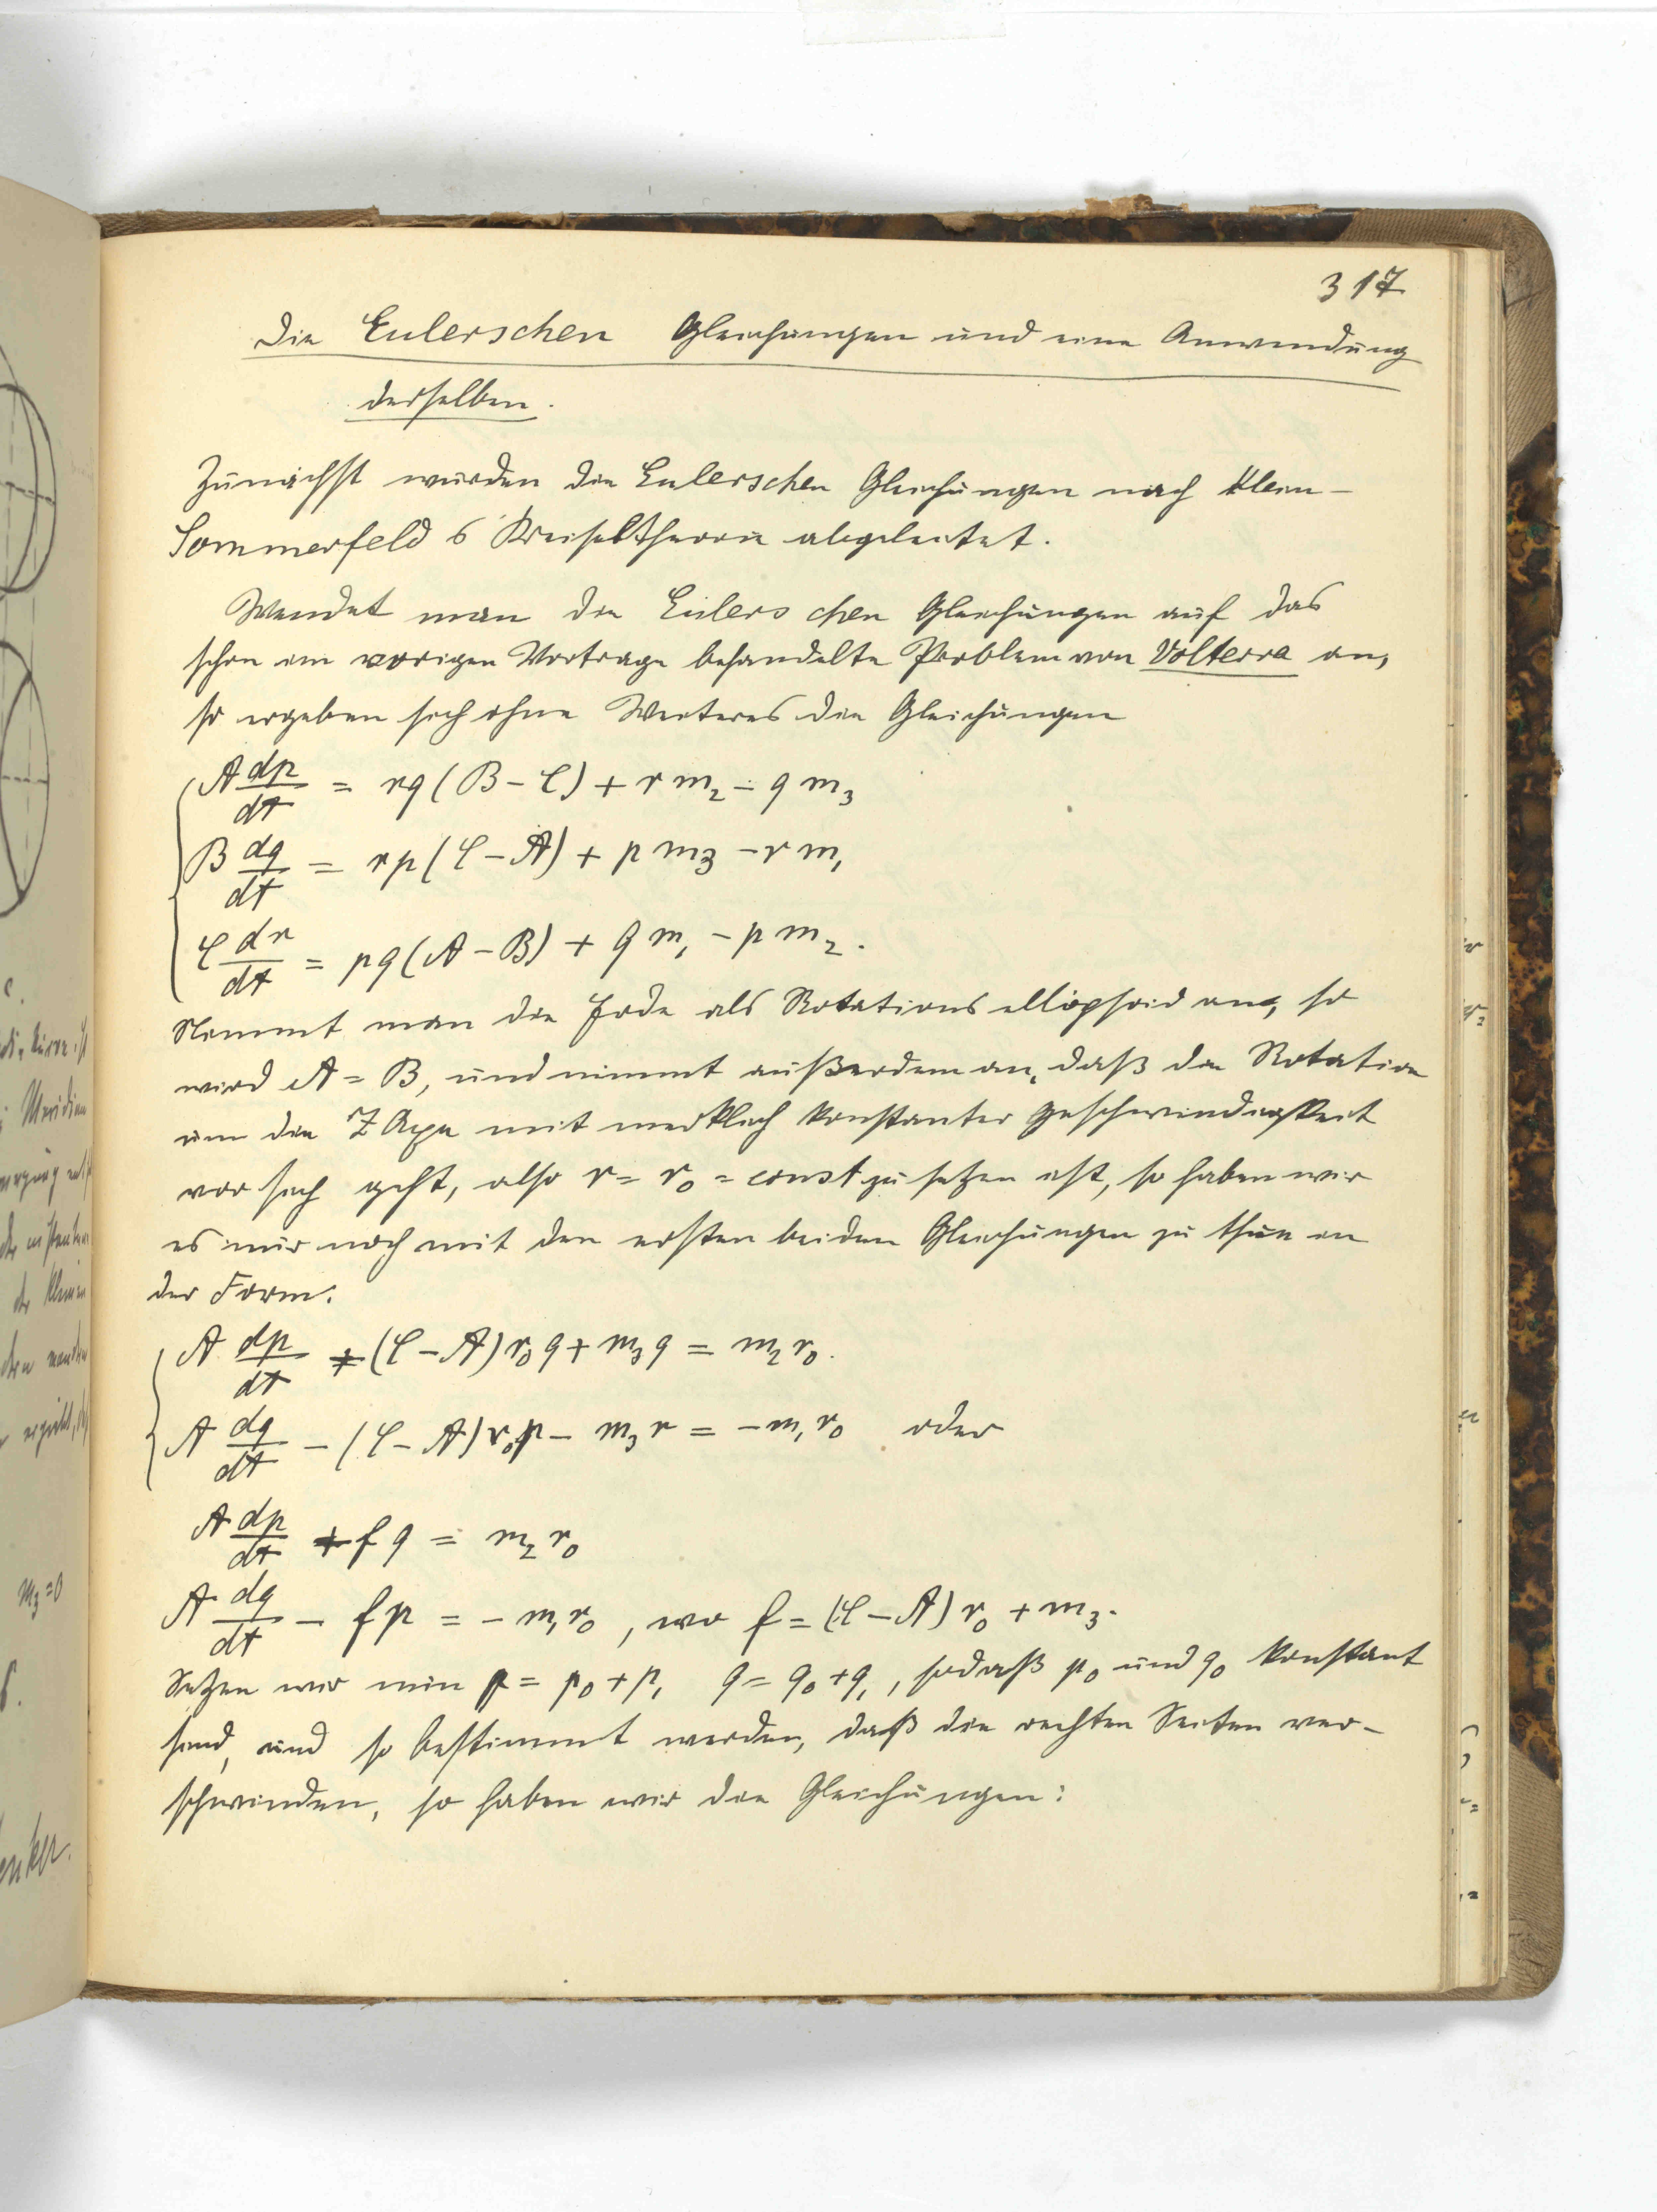 317
Die Eulerschen Gleichungen und eine Anwendung
derselben.
Zunächst wurden die Eulerschen Gleichungen nach Klein-
Sommerfeld's Kreiseltheorie abgeleitet.
Wendet man die Eulerschen Gleichungen auf das
schon im vorigen Vortrage behandelte Problem von Volterra an,
so ergeben sich ohne Weiteres die Gleichungen
A dp/dt = rq (B - C) + r m₂ - q m₃
B dq/dt = rp (C - A) + p m₃ - r m₁
C dr/dt = pq (A - B) + q m₁ - p m₂.
Nimmt man die Erde als Rotationsellipsoid an, so
wird A = B, und nimmt außerdem an, daß die Rotation
um die Z Axe mit merklich konstanter Geschwindigkeit
vor sich geht, also r = r₀ = const zu setzen ist, so haben wir
es nur noch mit den ersten beiden Gleichungen zu thun in
der Form:
A dp/dt + (C - A) r₀ q + m₃ q = m₂ r₀.
A dq/dt - (C - A) r₀ p - m₃ r = - m₁ r₀ oder
A dp/dt + f q = m₂ r₀
A dq/dt - f p = - m₁ r₀, wo f = (C - A) r₀ + m₃.
Setzen wir nun p = p₀ + p₁ q = q₀ + q₁, sodaß p₀ und q₀ konstant
sind, und so bestimmt werden, daß die rechten Seiten ver-
schwinden, so haben wir die Gleichungen:
m₃ = 0